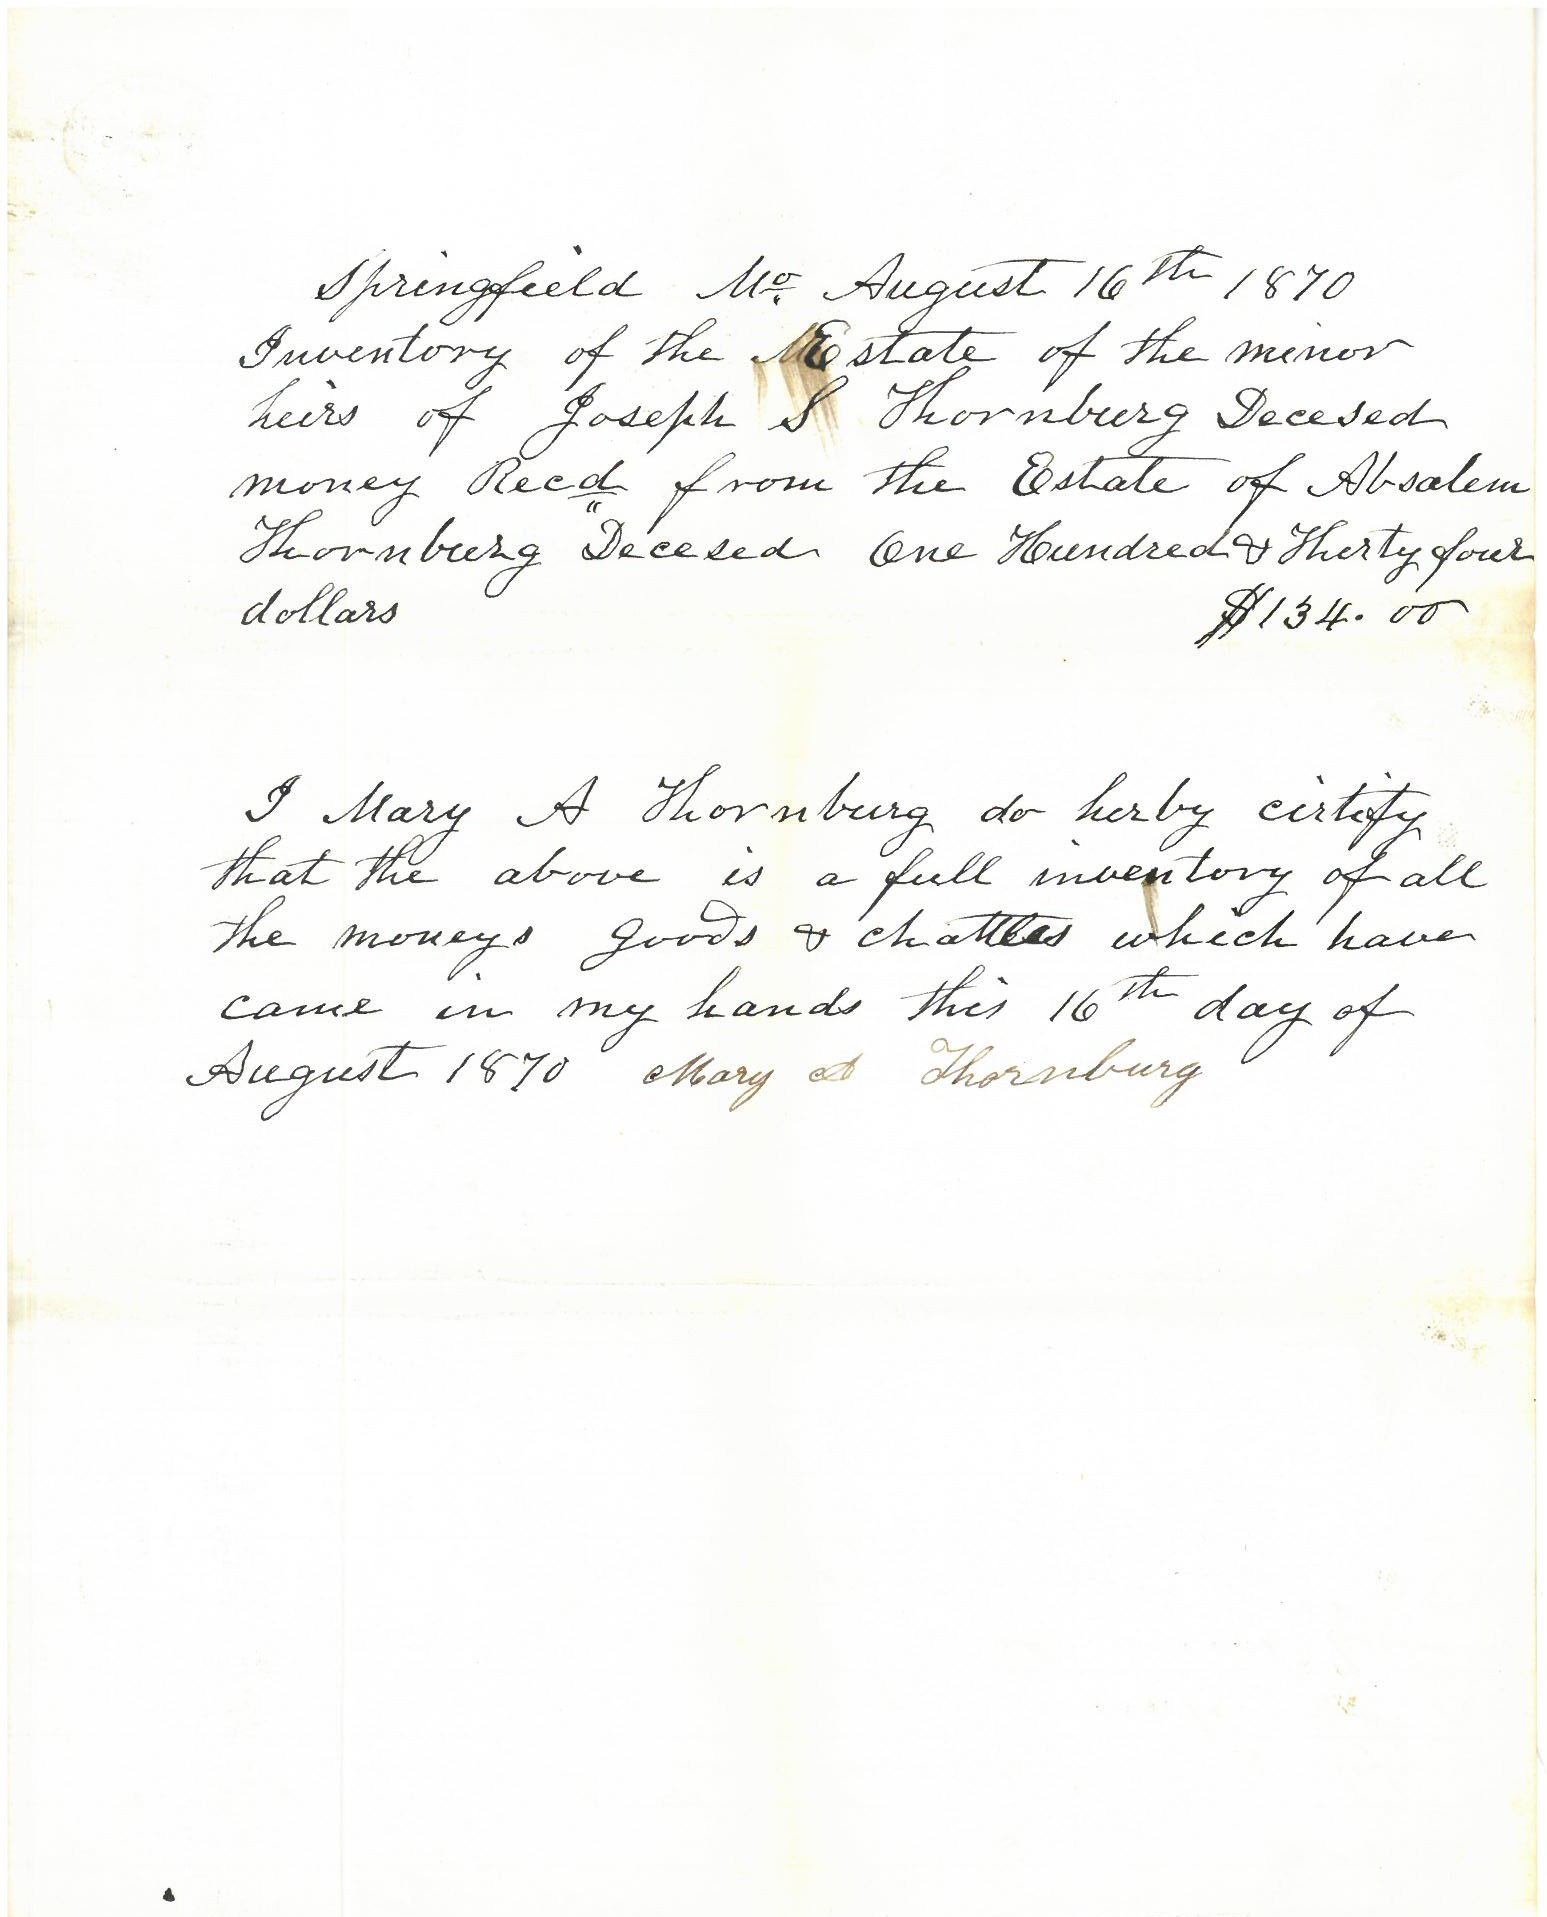 Springfield Mo. August 16th 1870
Inventory of the Estate of the minor
heirs of Joseph S Thornburg Decesed
money Recd from the Estate of Absalem
Thornburg Decesed One Hundred & Thirty four
dollars $134.00
I Mary A Thornburg do herby cirtify
that the above is a full inventory of all
the moneys goods & chattles which have
came in my hands this 16th day of
August 1870 Mary A Thornburg